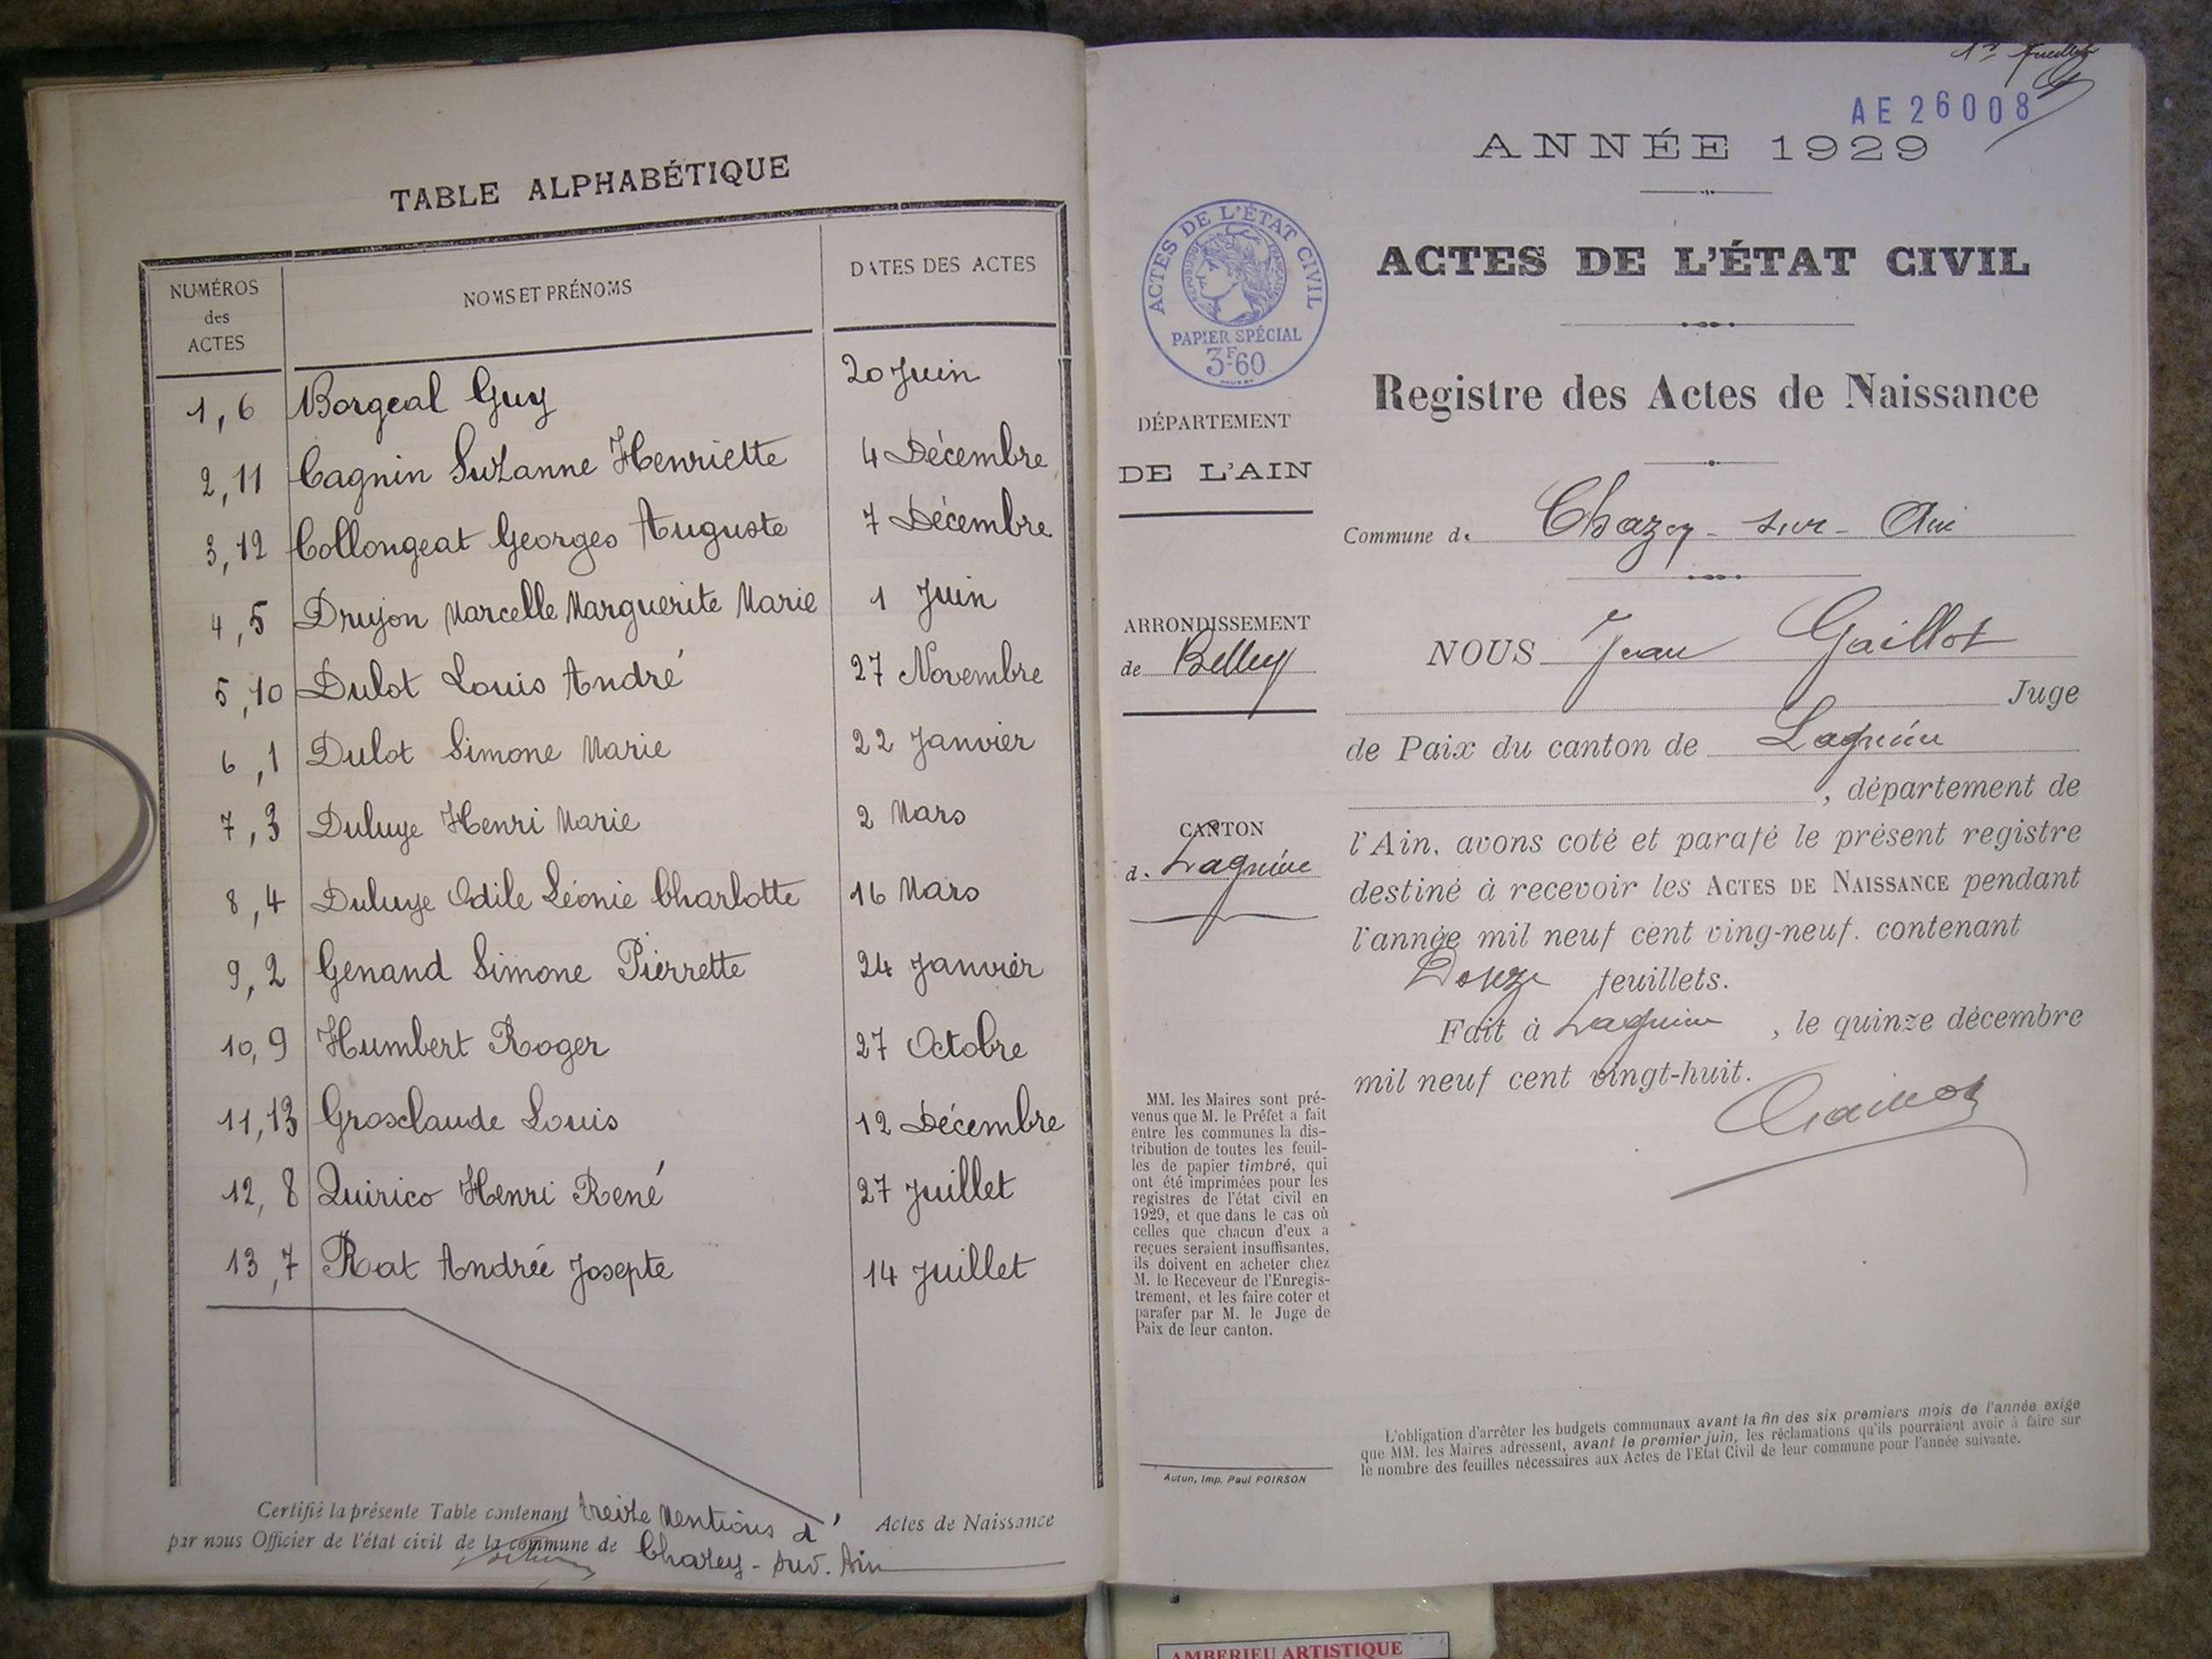 TABLE ALPHABÉTIQUE
NUMÉROS
des
ACTES
NOMS ET PRÉNOMS
DATES DES ACTES
1, 6 Borgeal Guy 20 Juin
2, 11 Cagnin Suzanne Henriette 4 Décembre
3, 12 Collongeat Georges Auguste 7 Décembre
4, 5 Drujon Marcelle Marguerite Marie 1 Juin
5, 10 Dulot Louis André 27 Novembre
6, 1 Dulot Simone Marie 22 Janvier
7, 3 Duluye Henri Marie 2 Mars
8, 4 Duluye Odile Léonie Charlotte 16 Mars
9, 2 Genand Simone Pierrette 24 Janvier
10, 9 Humbert Roger 27 Octobre
11, 13 Grosclaude Louis 12 Décembre
12, 8 Quirico Henri René 27 Juillet
13, 7 Rat Andrée Josepte 14 Juillet
Certifié la présente Table contenant treize Mentions d' Actes de Naissance
par nous Officier de l'état civil de la commune de Chazey-sur-Ain
1er feuillet
AE 26008
ANNÉE 1929
ACTES DE L'ÉTAT CIVIL
RÉPUBLIQUE FRANÇAISE
PAPIER SPÉCIAL
3F60
ACTES DE L'ÉTAT CIVIL
Registre des Actes de Naissance
DÉPARTEMENT
DE L'AIN
Commune de Chazey-sur-Ain
ARRONDISSEMENT
de Belley
NOUS Jean Gaillot
Juge
de Paix du canton de Lagnieu
, département de
CANTON
d. Lagnieu
l'Ain, avons coté et parafé le présent registre
destiné à recevoir les ACTES DE NAISSANCE pendant
l'année mil neuf cent ving-neuf. contenant
Douze feuillets.
Fait à Lagnieu, le quinze décembre
mil neuf cent vingt-huit.
Gaillot
MM. les Maires sont pré-
venus que M. le Préfet a fait
entre les communes la dis-
tribution de toutes les feuil-
les de papier timbré, qui
ont été imprimées pour les
registres de l'état civil en
1929, et que dans le cas où
celles que chacun d'eux a
reçues seraient insuffisantes,
ils doivent en acheter chez
M. le Receveur de l'Enregis-
trement, et les faire coter et
parafer par M. le Juge de
Paix de leur canton.
Autun, Imp. Paul POIRSON
L'obligation d'arrêter les budgets communaux avant la fin des six premiers mois de l'année exige
que MM. les Maires adressent, avant le premier juin, les réclamations qu'ils pourraient avoir à faire sur
le nombre des feuilles nécessaires aux Actes de l'Etat Civil de leur commune pour l'année suivante.
AMBERIEU ARTISTIQUE